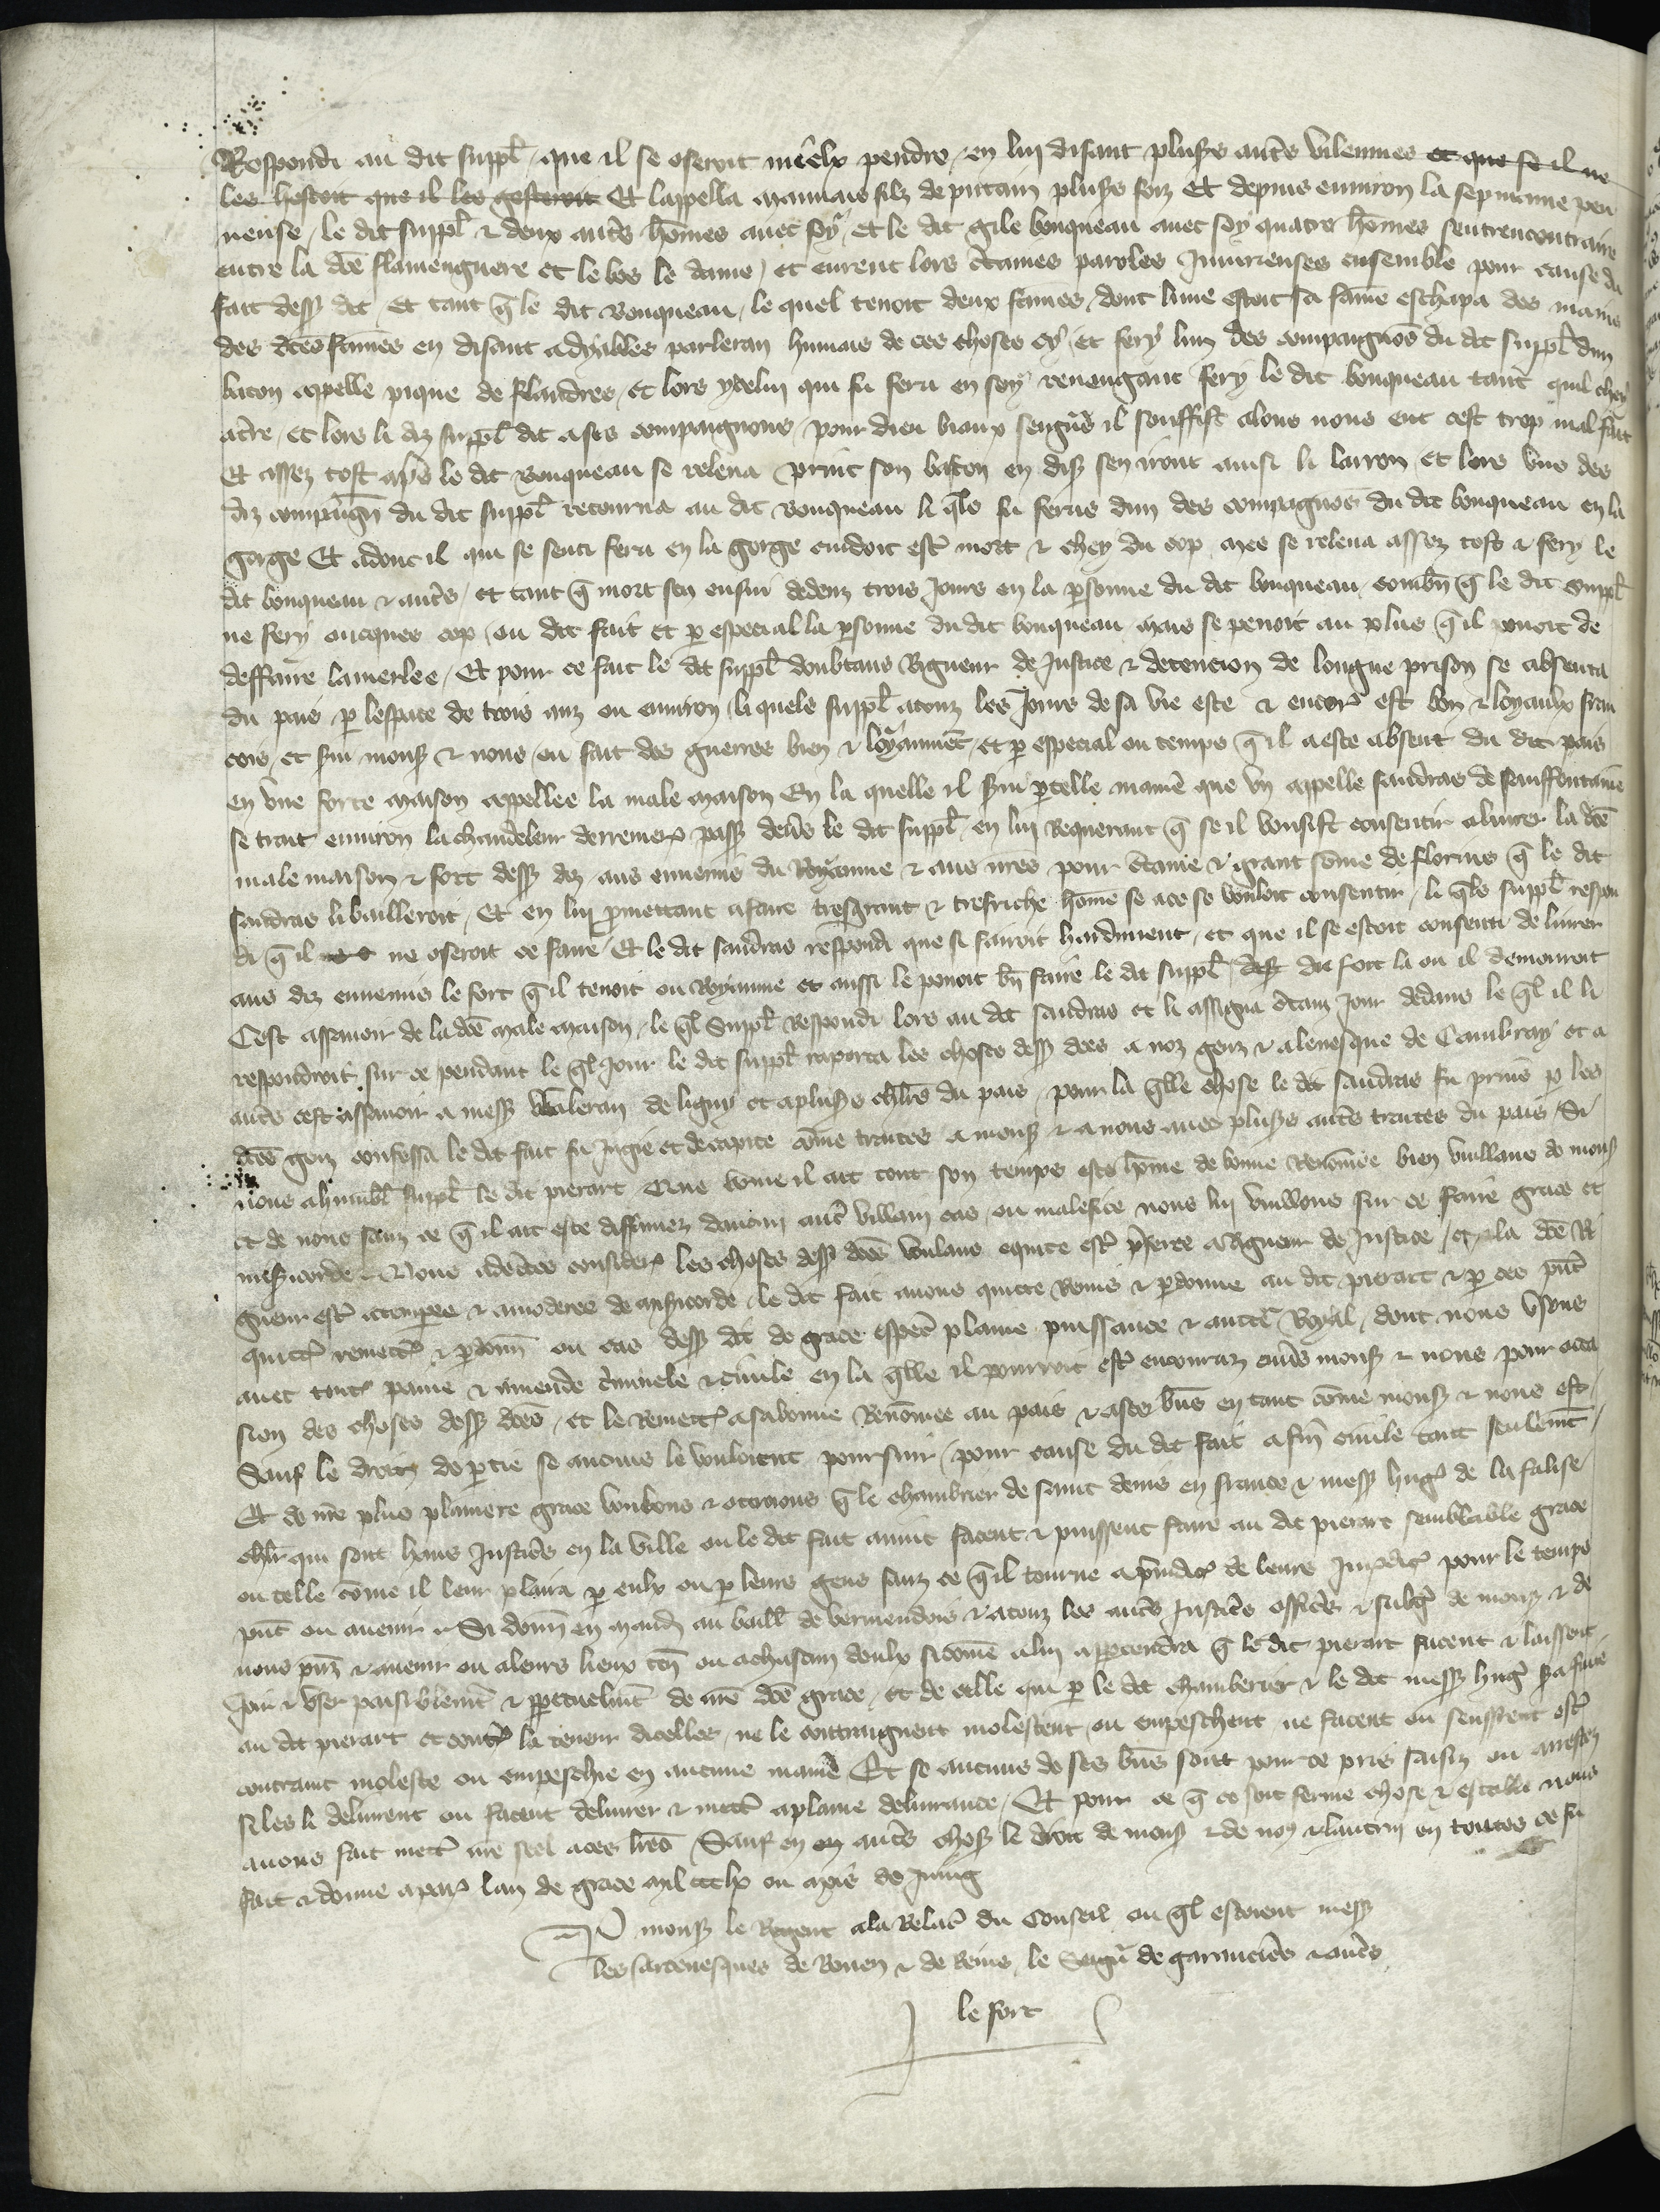 Respondi au dit suppl̃ que il se oseroit miex pendre en lui disant pluss autr̃s vilennies et que se il ne
les hostoit que il les gesteroit Et lappella mauvais filz de putain pluss foiz Et depuis environ la sepmaine pen
neuse le dit suppl̃ & deux autr̃s hõmes avec soy et le dit gile bouqueau avec soy quatre hõmes sentrencontrairẽ
entre la dcẽ flamenguere et le bos le dame et eurent lors c̃taines paroles Injurieuses ensemble pour cause du
fait dess dit Et tant q̃ le dit Bouqueau le quel tenoit deux fãmes dont lune estoit sa fãme eschapa des mains
des dcẽs fãmes en disant a dyables parleran humais de ces choses cy et fery lun des compaignõs du dit suppl̃ dun
baton appelle pique de flandres et lors ycelui qui fu feru en soy revengant fery le dit bouqueau tant quil chey
a tr̃e et lors li diz suppl̃ dit a ses compaignons pour dieu biaux seign̾s il souffist alons nous ent cest trop mal fait
Et assez tost ap̾s le dit Bouqueau se releva print son baston en dis sen iront ainsi li larron et lors uns des
diz compaign̾ du dit suppl̃ retourna au dit Bouqueau li q̃ls fu ferus dun des compagnõs du dit bouqueau en la
gorge Et adonc il qui se senti feru en la gorge cuidoit estr̃ mort & chey du cop mes se releva assez tost & fery le
dit bouqueau & autr̃s et tant q̃ mort sen ensui dedenz trois Jours en la p̱sonne du dit bouqueau combn̄ q̃ le dit suppl̃
ne fery oncques cop ou dit fait et p̱ especial la p̱sonne du dit bouqueau mais se penoit au plus q̃ il povoit de
deffaire la merlee Et pour ce fait le dit suppl̃ doubtans Rigueur de Justice & detencion de longue prison se absenta
du pais p̱ lespace de trois anz ou environ li quels suppl̃ a touz les Jours de sa vie este & encor̾ est bon & loyaulx fran
cois et servi mons & nous ou fait des guerres bien & loyaumẽt et p̱ especial ou temps q̃ il a este absent du dit pais
en une forte maison appellee la male maison En la quelle il servi p̱ telle maniẽ que un appelle sandras de sauffontaine
se trait environ la chandeleur derreniere pass dev̾s le dit suppl̃ en lui Requerant q̃ se il vousist consentir a livrer la dcẽ
male maison & fort dess diz aus ennemis du Royaume & aus nrẽs pour c̃taine & grant sõme de florins q̃ le dit
sandras li bailleroit Et en lui p̱mettant a faire tresgrant & tresriche hõme se a ce se vouloit consentir li q̃ls suppl̃ respon
di q̃ il ne oseroit ce faire Et le dit sandras respondi que si fairoit hardiment et que il se estoit consenti de livrer
aus diz ennemis le fort q̃ il tenoit ou Royaume et aussi le povoit bn̄ faire le dit suppl̃ du fort la ou il demouroit
Cest assavoir de la dcẽ male maison le q̃l suppl̃ Respondi lors au dit sandras et li assigna c̃tain Jour dedans le q̃l il li
respondroit sur ce pendant le q̃l Jour le dit suppl̃ raporta les choses dess dcẽs a noz genz & a levesque de Cambray et a
autr̃s cest assavoir a mess Waleran de ligny et a pluss chlr̃s du pais pour la q̃lle chose le dit sandras fu prins p̱ les
dcẽs genz confessa le dit fait fu Jugie et decapite cõme traitre a mons & a nous avec pluss autr̃s traitres du pais Si
nous a humbl̃ suppl̃ le dit pierart Que cõme il ait tout son temps este hõme de bonne Renõmee bien vuillans de mons
et de nous sanz ce q̃ il ait este diffamez daucun autr̃ villain cas ou malefice nous lui vuillons sur ce faire grace et
mis̾icorde & Nous adcertes consider̾ les choses dess dcẽs voulans equite estr̃ p̃feree a Rigueur de Justice et la dcẽ Ri
gueur estr̃ attempree & amoderee de mis̾icorde le dit fait avons quitte Remis & p̱donne au dit pierart & p̱ ces pñt̃
quittõs remettõs & p̱donn̄ ou cas dess dit de grace especl̃ plaine puissance & auctẽ Royal dont nous usons
avec toute̾ paine & amende c̃minele & civile en la q̃lle il pourroit estr̃ encouruz env̾s mons & nous pour occa
sion des choses dess dcẽs et le Remettõs a sa bonne Renõmee au pais & a ses bñs en tant cõme mons & nous est
Sauf le droit de p̱tie se aucuns le vouloient poursuir pour cause du dit fait a fin̄ civile tant seulemt̃
Et de nr̃e plus plainiere grace voulons & ottroions q̃ le chambrier de saint denis en france & mess hug̾ de la falise
chlr̃ qui sont haus Justic̾s en la ville ou le dit fait avint facent & puissent faire au dit pierart semblable grace
ou telle cõme il leur plaira p̱ eulx ou p̱ leurs gens sanz ce q̃ il tourne a p̱iudic̾ de leurs Jurdic̾ pour le temps
pñt ou avenir & Si donn̄ en mand̾ au baill̃ de vermendois & a touz les autr̃s Justic̾s offic̾s & subg̾ de mons & de
nous pñz & avenir ou a leurs lieux ten̄ ou a chascun deulx si cõme a lui appartendra q̃ le dit pierart facent & laissent
Joir & user paisiblemt̃ & p̱petuelmt̃ de nr̃e dcẽ grace et de celle qui p̱ le dit chamberier & le dit mess hug̾ sera faicte
au dit pierart et contr̾ la teneur dicelles ne le contraignent molestent ou empeschent ne facent ou seuffrent estr̃
contraint moleste ou empeschie en aucune maniẽ Et se aucuns de ses bñs sont pour ce pris saisiz ou arrestez
si les li delivrent ou facent delivrer & mettr̃ a plaine delivrance Et pour ce q̃ ce soit ferme chose & estable nous
avons fait mettr̃ nr̃e seel a ces lr̃es Sauf en autr̃s choses le droit de mons & de nous & lautrui en toutes ce fu
fait & donne a par̾ lan de grace mil ccclx ou mois de Juing
P̱ mons le Regent a la Relac̃ du Conseil ou q̃l estoient mess
les arcevesques de Rouen & de Reins le Seign̾ de garencier̾s & autr̃s
le fort